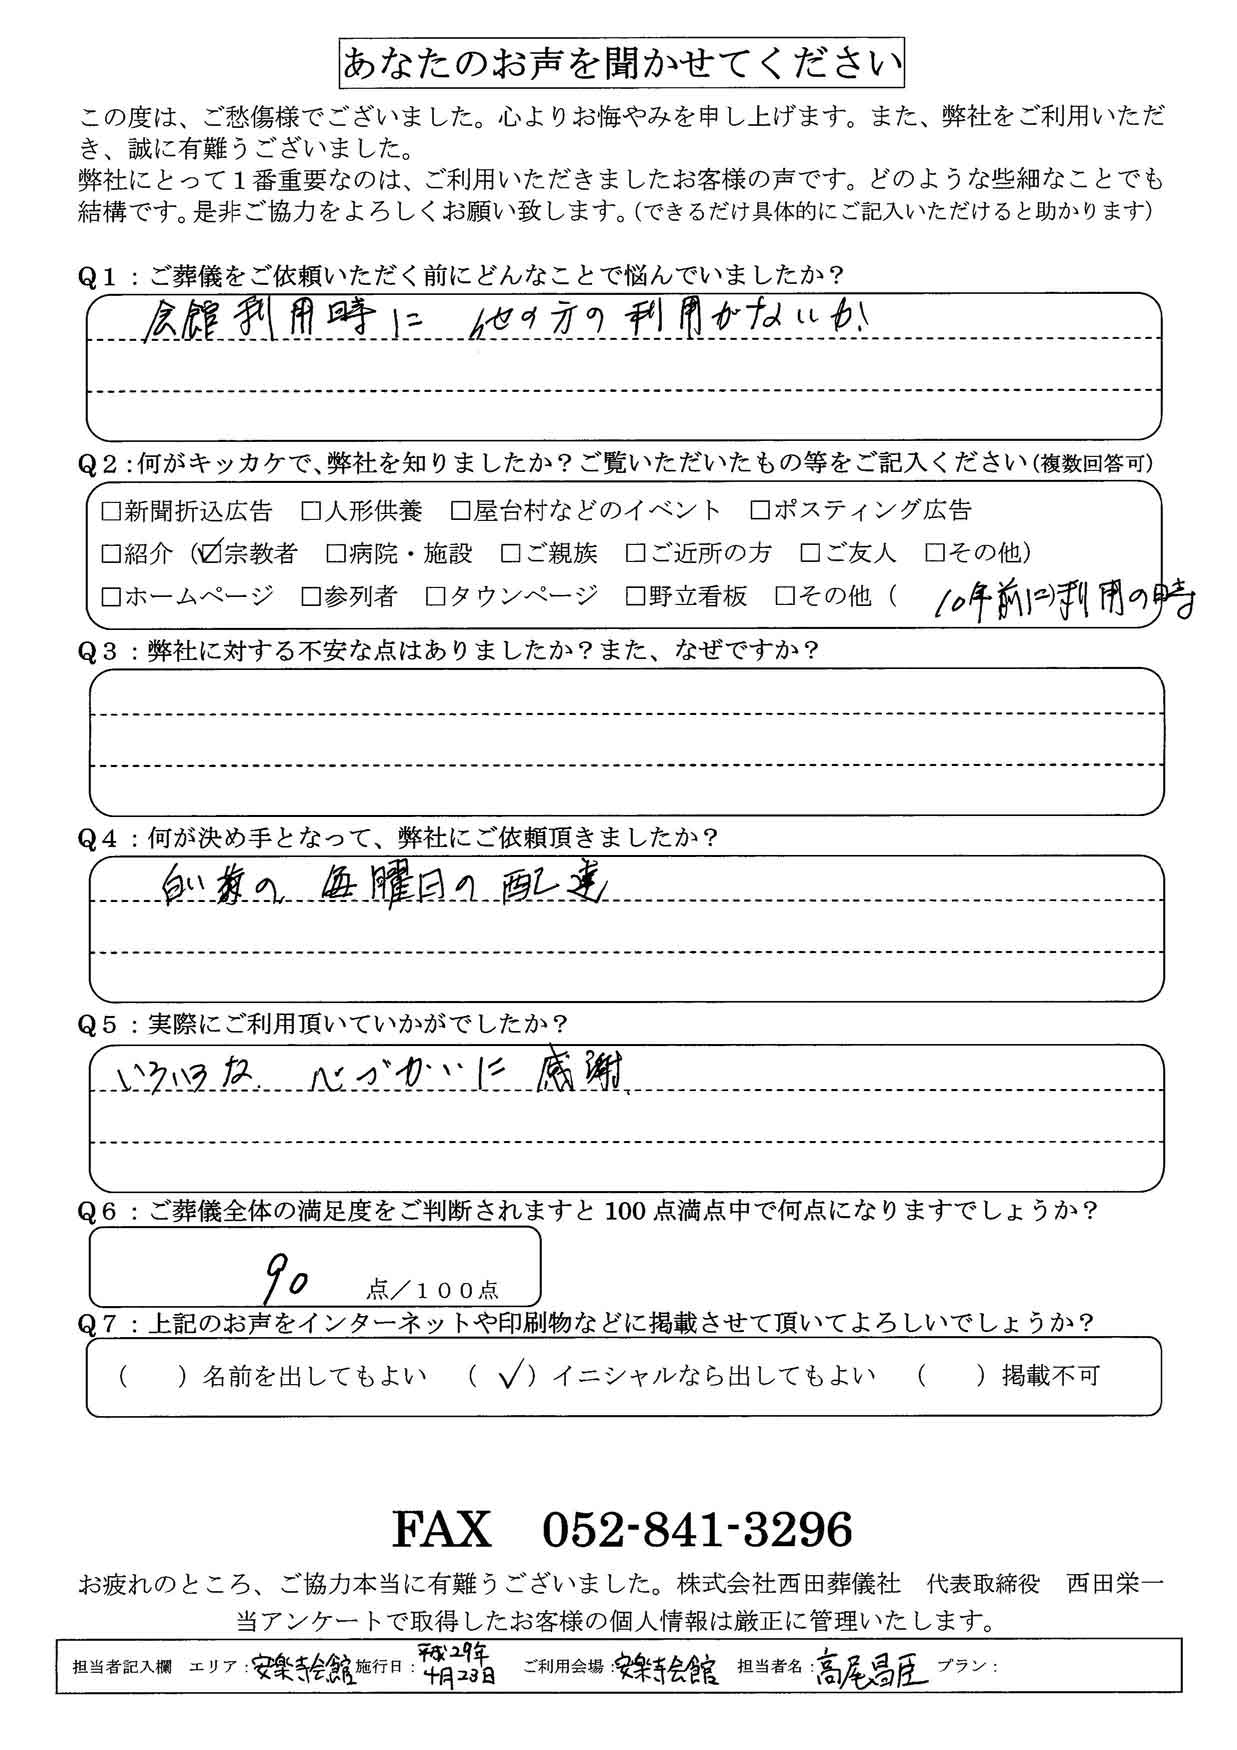 あなたのお声を聞かせてください
この度は、ご愁傷様でございました。心よりお悔やみを申し上げます。また、弊社をご利用いただ
き、誠に有難うございました。
弊社にとって１番重要なのは、ご利用いただきましたお客様の声です。どのような些細なことでも
結構です。是非ご協力をよろしくお願い致します。（できるだけ具体的にご記入いただけると助かります）
Q１：ご葬儀をご依頼いただく前にどんなことで悩んでいましたか？
会館利用時に 他の方の利用がないか！
Q２：何がキッカケで、弊社を知りましたか？ご覧いただいたもの等をご記入ください（複数回答可）
□新聞折込広告 □人形供養 □屋台村などのイベント □ポスティング広告
□紹介（☑宗教者 □病院・施設 □ご親族 □ご近所の方 □ご友人 □その他）
□ホームページ □参列者 □タウンページ □野立看板 □その他（ 10年前に利用の時
Q３：弊社に対する不安な点はありましたか？また、なぜですか？
Q４：何が決め手となって、弊社にご依頼頂きましたか？
白い菊の 毎曜日の配達
Q５：実際にご利用頂いていかがでしたか？
いろいろな 心づかいに 感謝
Q６：ご葬儀全体の満足度をご判断されますと 100 点満点中で何点になりますでしょうか？
90 点／１００点
Q７：上記のお声をインターネットや印刷物などに掲載させて頂いてよろしいでしょうか？
（ ）名前を出してもよい （✓）イニシャルなら出してもよい （ ）掲載不可
FAX 052-841-3296
お疲れのところ、ご協力本当に有難うございました。株式会社西田葬儀社 代表取締役 西田栄一
当アンケートで取得したお客様の個人情報は厳正に管理いたします。
担当者記入欄 エリア：安楽寺会館 施行日：平成29年4月23日 ご利用会場：安楽寺会館 担当者名：高尾昌臣 プラン：